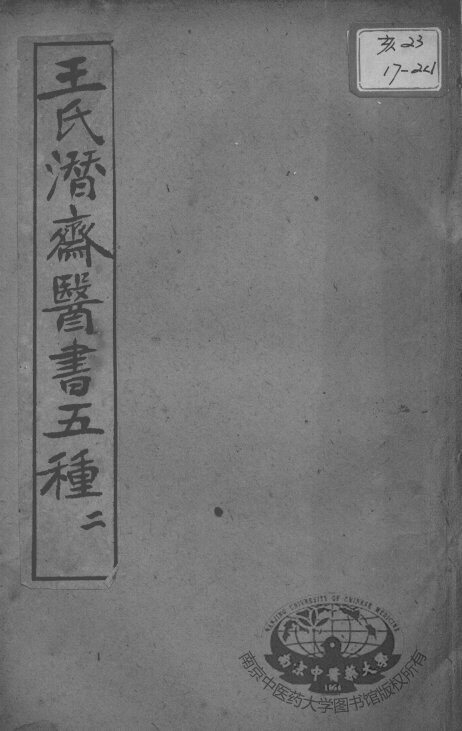 王氏潛齋醫書五種
二
亥23
17-241
NANJING UNIVERSITY OF CHINESE MEDICINE
南京中醫藥大學
1954
南京中医药大学图书馆版权所有